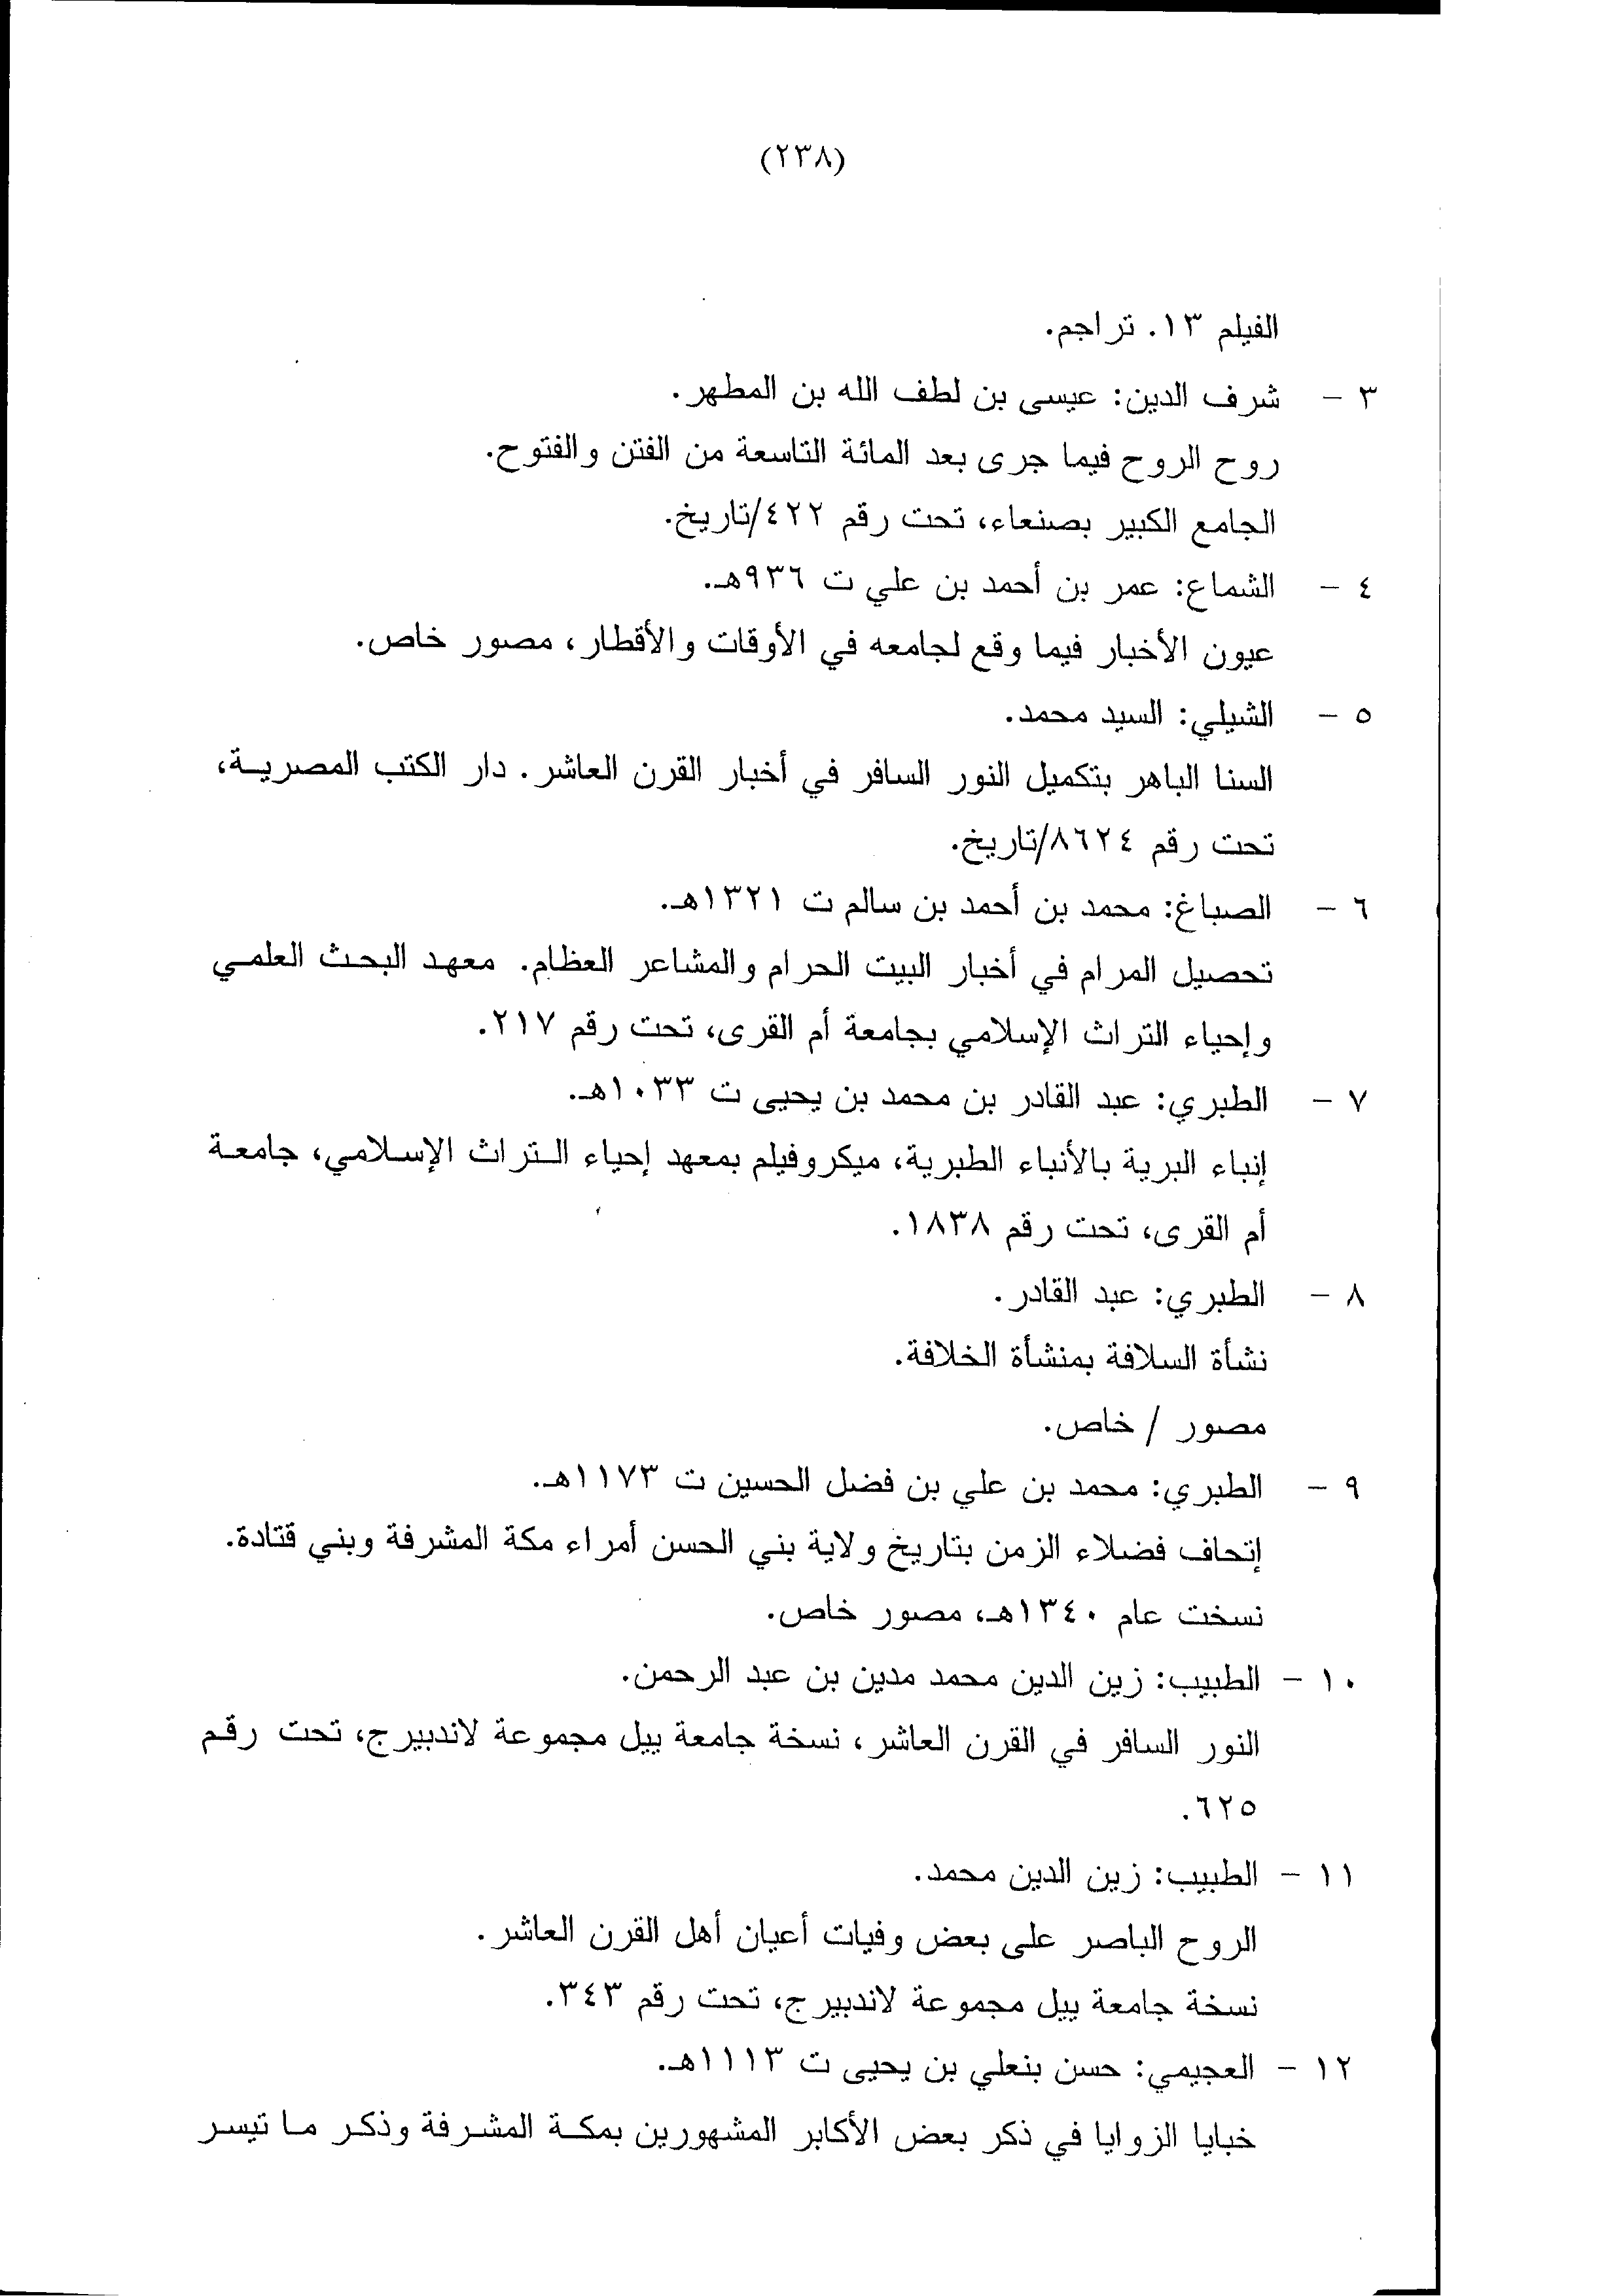 (٢٣٨)
الفيلم ١٣. تراجم.
٣ - شرف الدين: عيسى بن لطف الله بن المطهر.
روح الروح فيما جرى بعد المائة التاسعة من الفتن والفتوح.
الجامع الكبير بصنعاء، تحت رقم ٤٢٢/تاريخ.
٤ - الشماع: عمر بن أحمد بن علي ت ٩٣٦هـ.
عيون الأخبار فيما وقع لجامعه في الأوقات والأقطار، مصور خاص.
٥ - الشيلي: السيد محمد.
السنا الباهر بتكميل النور السافر في أخبار القرن العاشر. دار الكتب المصرية،
تحت رقم ٨٦٢٤/تاريخ.
٦ - الصباغ: محمد بن أحمد بن سالم ت ١٣٢١هـ.
تحصيل المرام في أخبار البيت الحرام والمشاعر العظام. معهد البحث العلمي
وإحياء التراث الإسلامي بجامعة أم القرى، تحت رقم ٢١٧.
٧ - الطبري: عبد القادر بن محمد بن يحيى ت ١٠٣٣هـ.
إنباء البرية بالأنباء الطبرية، ميكروفيلم بمعهد إحياء التراث الإسلامي، جامعة
أم القرى، تحت رقم ١٨٣٨.
٨ - الطبري: عبد القادر.
نشأة السلافة بمنشأة الخلافة.
مصور / خاص.
٩ - الطبري: محمد بن علي بن فضل الحسين ت ١١٧٣هـ.
إتحاف فضلاء الزمن بتاريخ ولاية بني الحسن أمراء مكة المشرفة وبني قتادة.
نسخت عام ١٣٤٠هـ، مصور خاص.
١٠ - الطبيب: زين الدين محمد مدين بن عبد الرحمن.
النور السافر في القرن العاشر، نسخة جامعة ييل مجموعة لاندبيرج، تحت رقم
٦٢٥.
١١ - الطبيب: زين الدين محمد.
الروح الباصر على بعض وفيات أعيان أهل القرن العاشر.
نسخة جامعة ييل مجموعة لاندبيرج، تحت رقم ٣٤٣.
١٢ - العجيمي: حسن بنعلي بن يحيى ت ١١١٣هـ.
خبايا الزوايا في ذكر بعض الأكابر المشهورين بمكة المشرفة وذكر ما تيسر